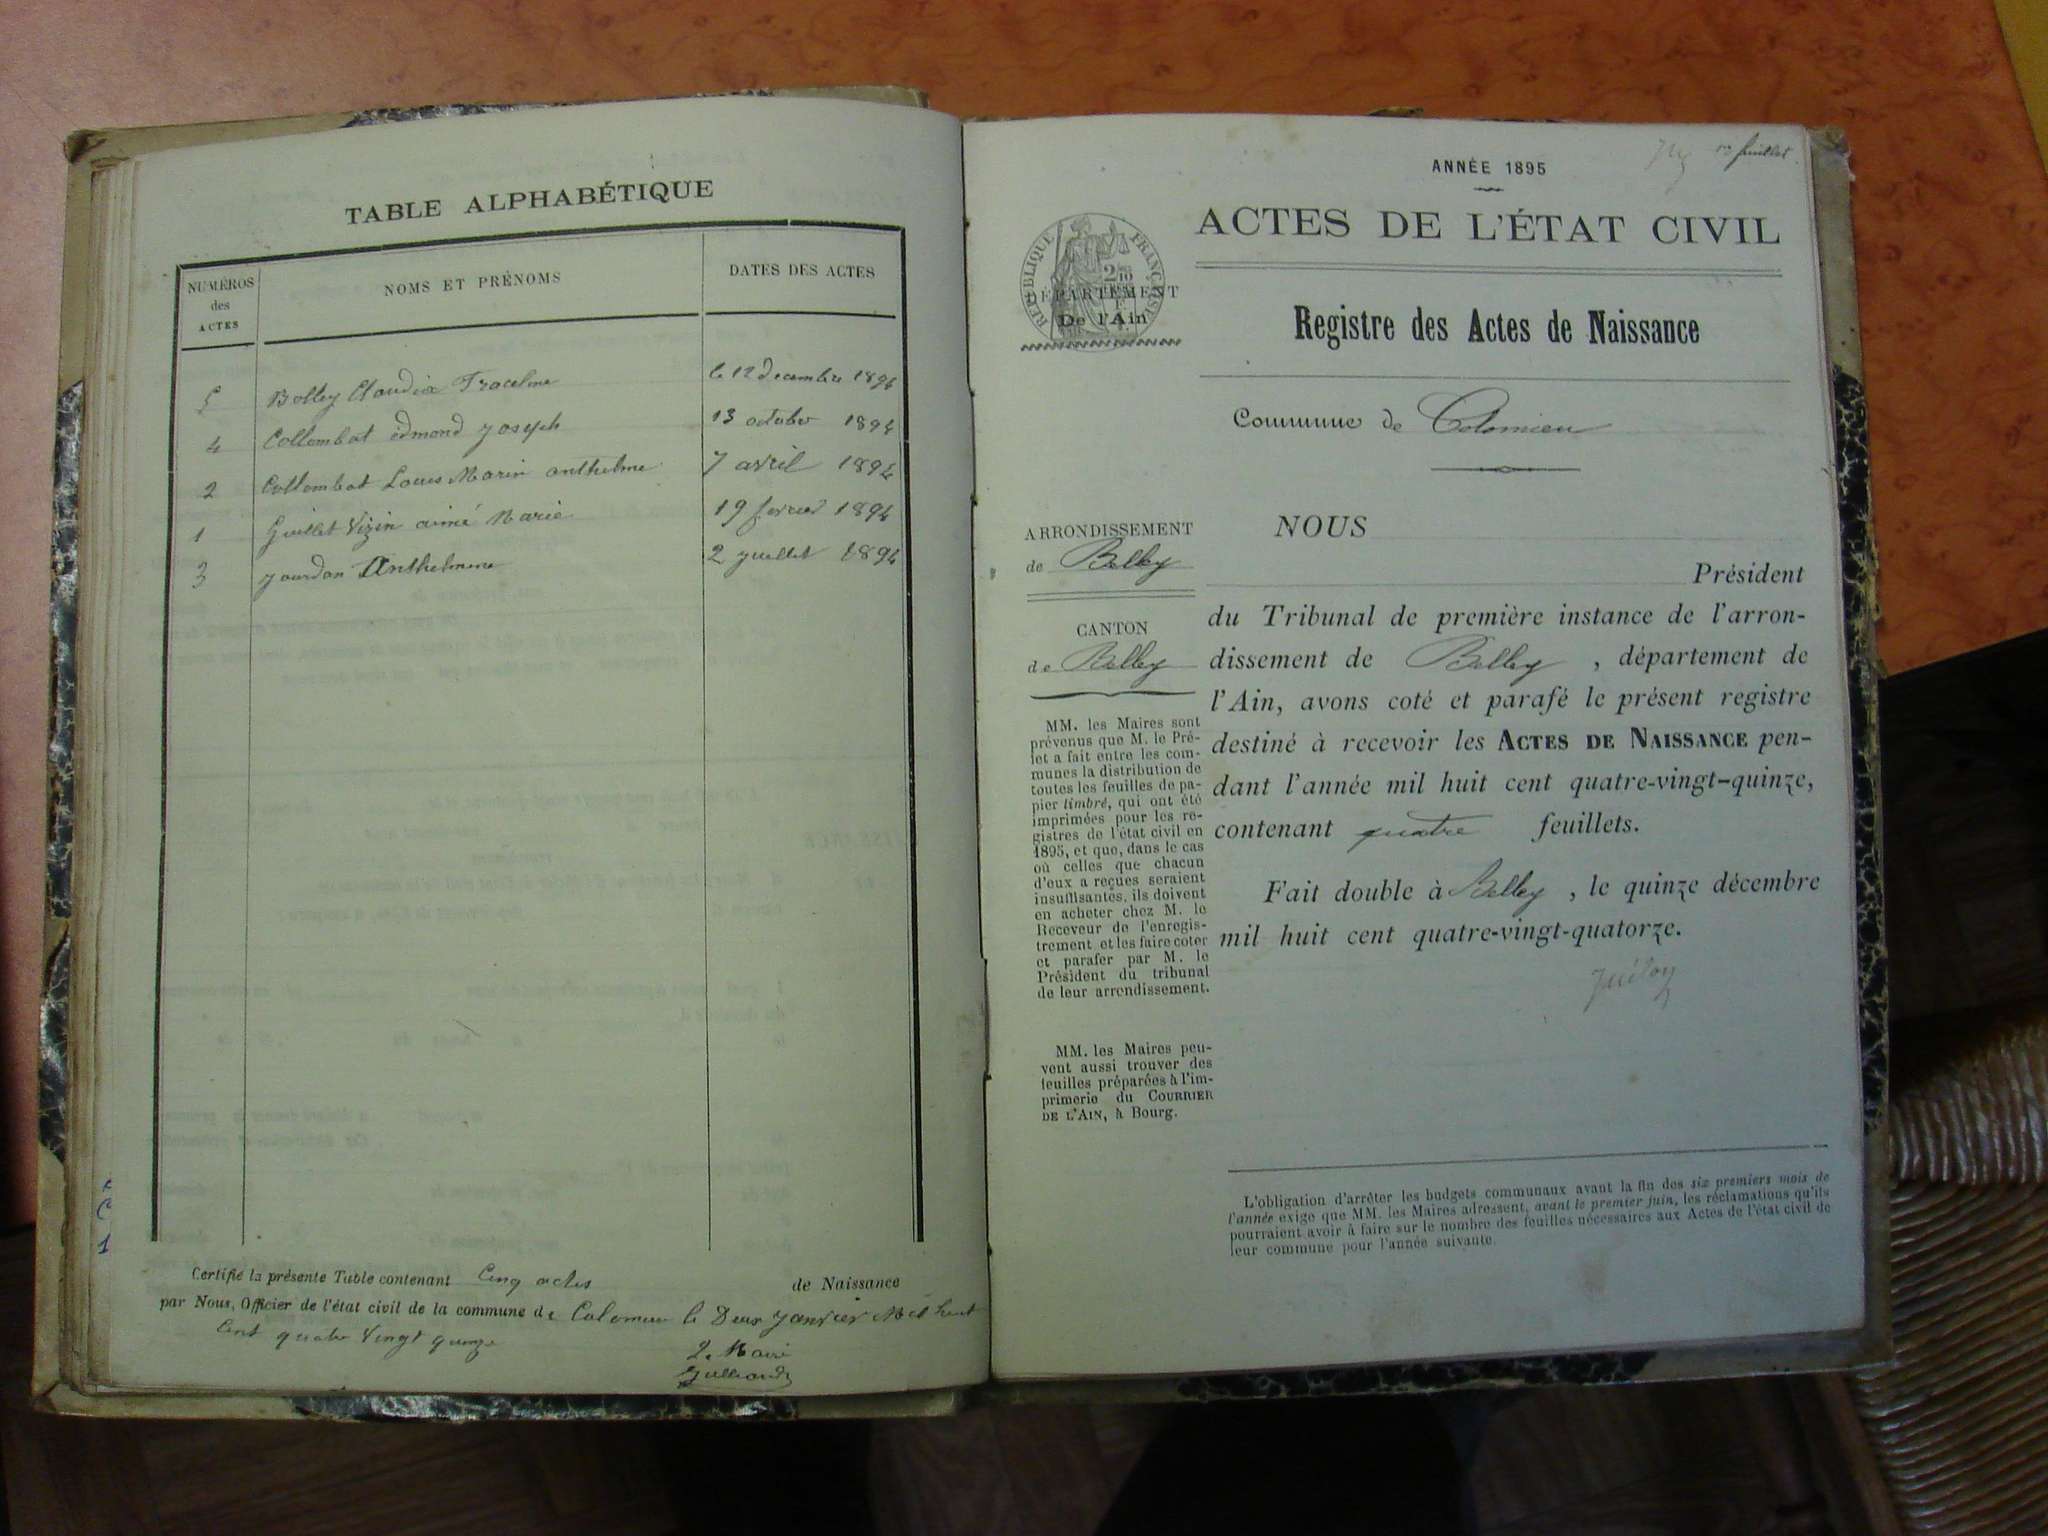 TABLE ALPHABÉTIQUE
NUMÉROS des ACTES
NOMS ET PRÉNOMS
DATES DES ACTES
5 Bolley Claudia le 12 decembre 1894
4 Collombat edmond Joseph 13 octobre 1894
2 Collombat Louis Marin anthelme 7 avril 1894
1 Guillet Vizin aimé Marie 19 fevrier 1894
3 Jourdan Anthelmine 2 Juillet 1894
Certifié la présente Table contenant Cinq actes de Naissance
par Nous, Officier de l'état civil de la commune de Colomieu le Deux Janvier Mil huit
Cent quatre Vingt quinze
Le Maire
1er feuillet.
ANNÉE 1895
ACTES DE L'ÉTAT CIVIL
RÉPUBLIQUE FRANÇAISE
DÉPARTEMENT
De l'Ain
Registre des Actes de Naissance
Commune de Colomieu
ARRONDISSEMENT
de Belley
CANTON
de Belley
MM. les Maires sont
prévenus que M. le Pré-
fet a fait entre les com-
munes la distribution de
toutes les feuilles de pa-
pier timbré, qui ont été
imprimées pour les re-
gistres de l'état civil en
1895, et que, dans le cas
où celles que chacun
d'eux a reçues seraient
insuffisantes, ils doivent
en acheter chez M. le
Receveur de l'enregis-
trement et les faire coter
et parafer par M. le
Président du tribunal
de leur arrondissement.
MM. les Maires peu-
vent aussi trouver des
feuilles préparées à l'im-
primerie du COURRIER
DE L'AIN, à Bourg.
NOUS
Président
du Tribunal de première instance de l'arron-
dissement de Belley, département de
l'Ain, avons coté et parafé le présent registre
destiné à recevoir les ACTES DE NAISSANCE pen-
dant l'année mil huit cent quatre-vingt-quinze,
contenant quatre feuillets.
Fait double à Belley, le quinze décembre
mil huit cent quatre-vingt-quatorze.
L'obligation d'arrêter les budgets communaux avant la fin des six premiers mois de
l'année exige que MM. les Maires adressent, avant le premier juin, les réclamations qu'ils
pourraient avoir à faire sur le nombre des feuilles nécessaires aux Actes de l'état civil de
leur commune pour l'année suivante.